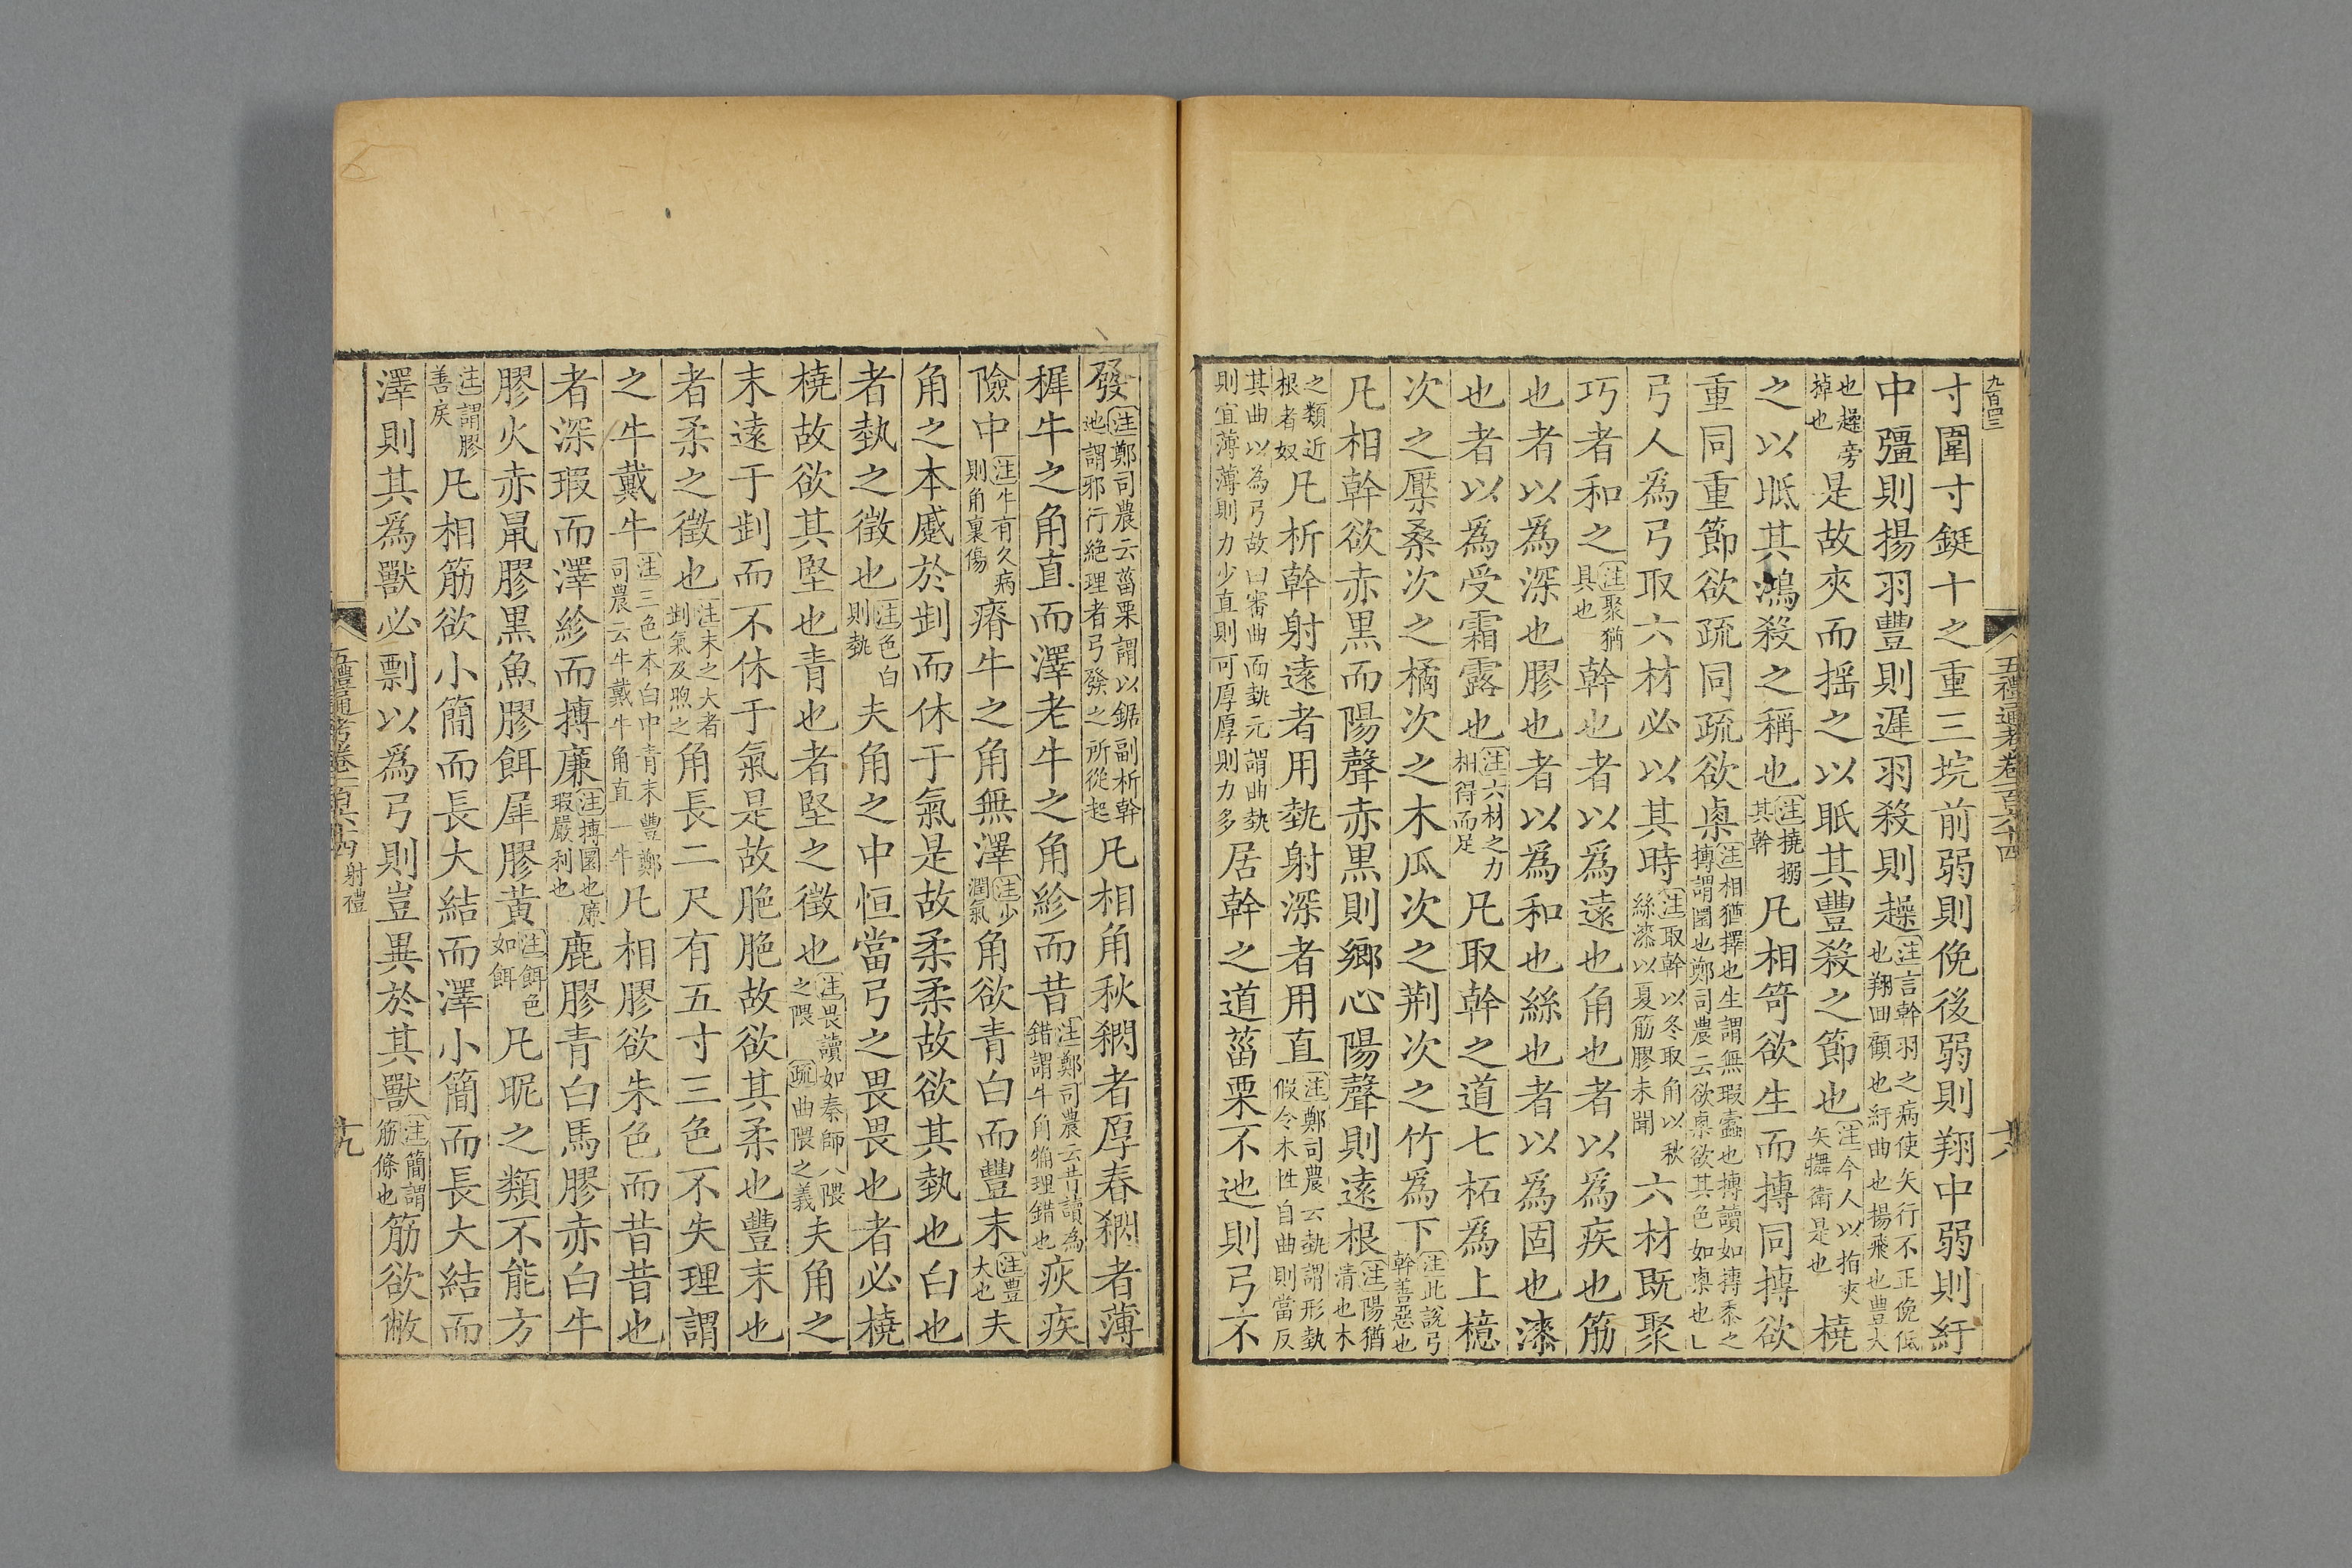 九百四三
五禮通考卷一百六十四
六
寸圍寸鋌十之重三垸前弱則俛後弱則翔中弱則紆
中彊則揚羽豐則遲羽殺則趮注言幹羽之病使矢行不正俛低也翔回顧也紆曲也揚飛也豊大
也趮旁掉也是故夾而揺之以眡其豐殺之節也注今人以指夾矢儛衛是也橈
之以眡其鴻殺之稱也注橈搦其幹凡相笴欲生而摶同摶欲
重同重節欲疏同疏欲㮚注相猶擇也生謂無瑕蠹也摶讀如摶黍之摶謂圜也鄭司農云欲㮚欲其色如㮚也乚
弓人爲弓取六材必以其時注取幹以冬取角以秋絲漆以夏筋膠未聞六材既聚
巧者和之注聚猶具也幹也者以爲遠也角也者以爲疾也筋
也者以爲深也膠也者以爲和也絲也者以爲固也漆
也者以爲受霜露也注六材之力相得而足凡取幹之道七柘爲上檍
次之檿桑次之橘次之木瓜次之荆次之竹爲下注此說弓幹善惡也
凡相幹欲赤黒而陽聲赤黒則鄉心陽聲則遠根注陽猶清也木
之類近根者奴凡析幹射遠者用埶射深者用直注鄭司農云埶謂形埶假令木性自曲則當反
其曲以為弓故曰審曲面埶元謂曲埶則宜薄薄則力少直則可厚厚則力多居幹之道菑栗不迆則弓不
發注鄭司農云菑栗謂以鋸副析幹迆謂邪行絶理者弓發之所從起凡相角秋閷者厚春閷者薄
穉牛之角直而澤老牛之角紾而昔注鄭司農云昔讀為錯謂牛角觕理錯也疢疾
險中注牛有久病則角裏傷瘠牛之角無澤注少潤氣角欲青白而豐末注豊大也夫
角之本蹙於剒而休于氣是故柔柔故欲其埶也白也
者埶之徵也注色白則埶夫角之中恒當弓之畏畏也者必橈
橈故欲其堅也青也者堅之徵也注畏讀如秦師入隈之隈疏曲隈之義夫角之
末遠于剒而不休于氣是故脃脃故欲其柔也豐末也
者柔之徵也注末之大者剒氣及煦之角長二尺有五寸三色不失理謂
之牛戴牛注三色本白中青末豐鄭司農云牛戴牛角直一牛凡相膠欲朱色而昔昔也
者深瑕而澤紾而摶廉注摶圜也廉瑕嚴利也鹿膠青白馬膠赤白牛
膠火赤鼠膠黒魚膠餌犀膠黃注餌色如餌凡昵之類不能方
注謂膠善戾凡相筋欲小簡而長大結而澤小簡而長大結而
澤則其爲獸必剽以爲弓則豈異於其獸注簡謂筋條也筋欲敝
五禮通考卷一百六十四射禮
十九